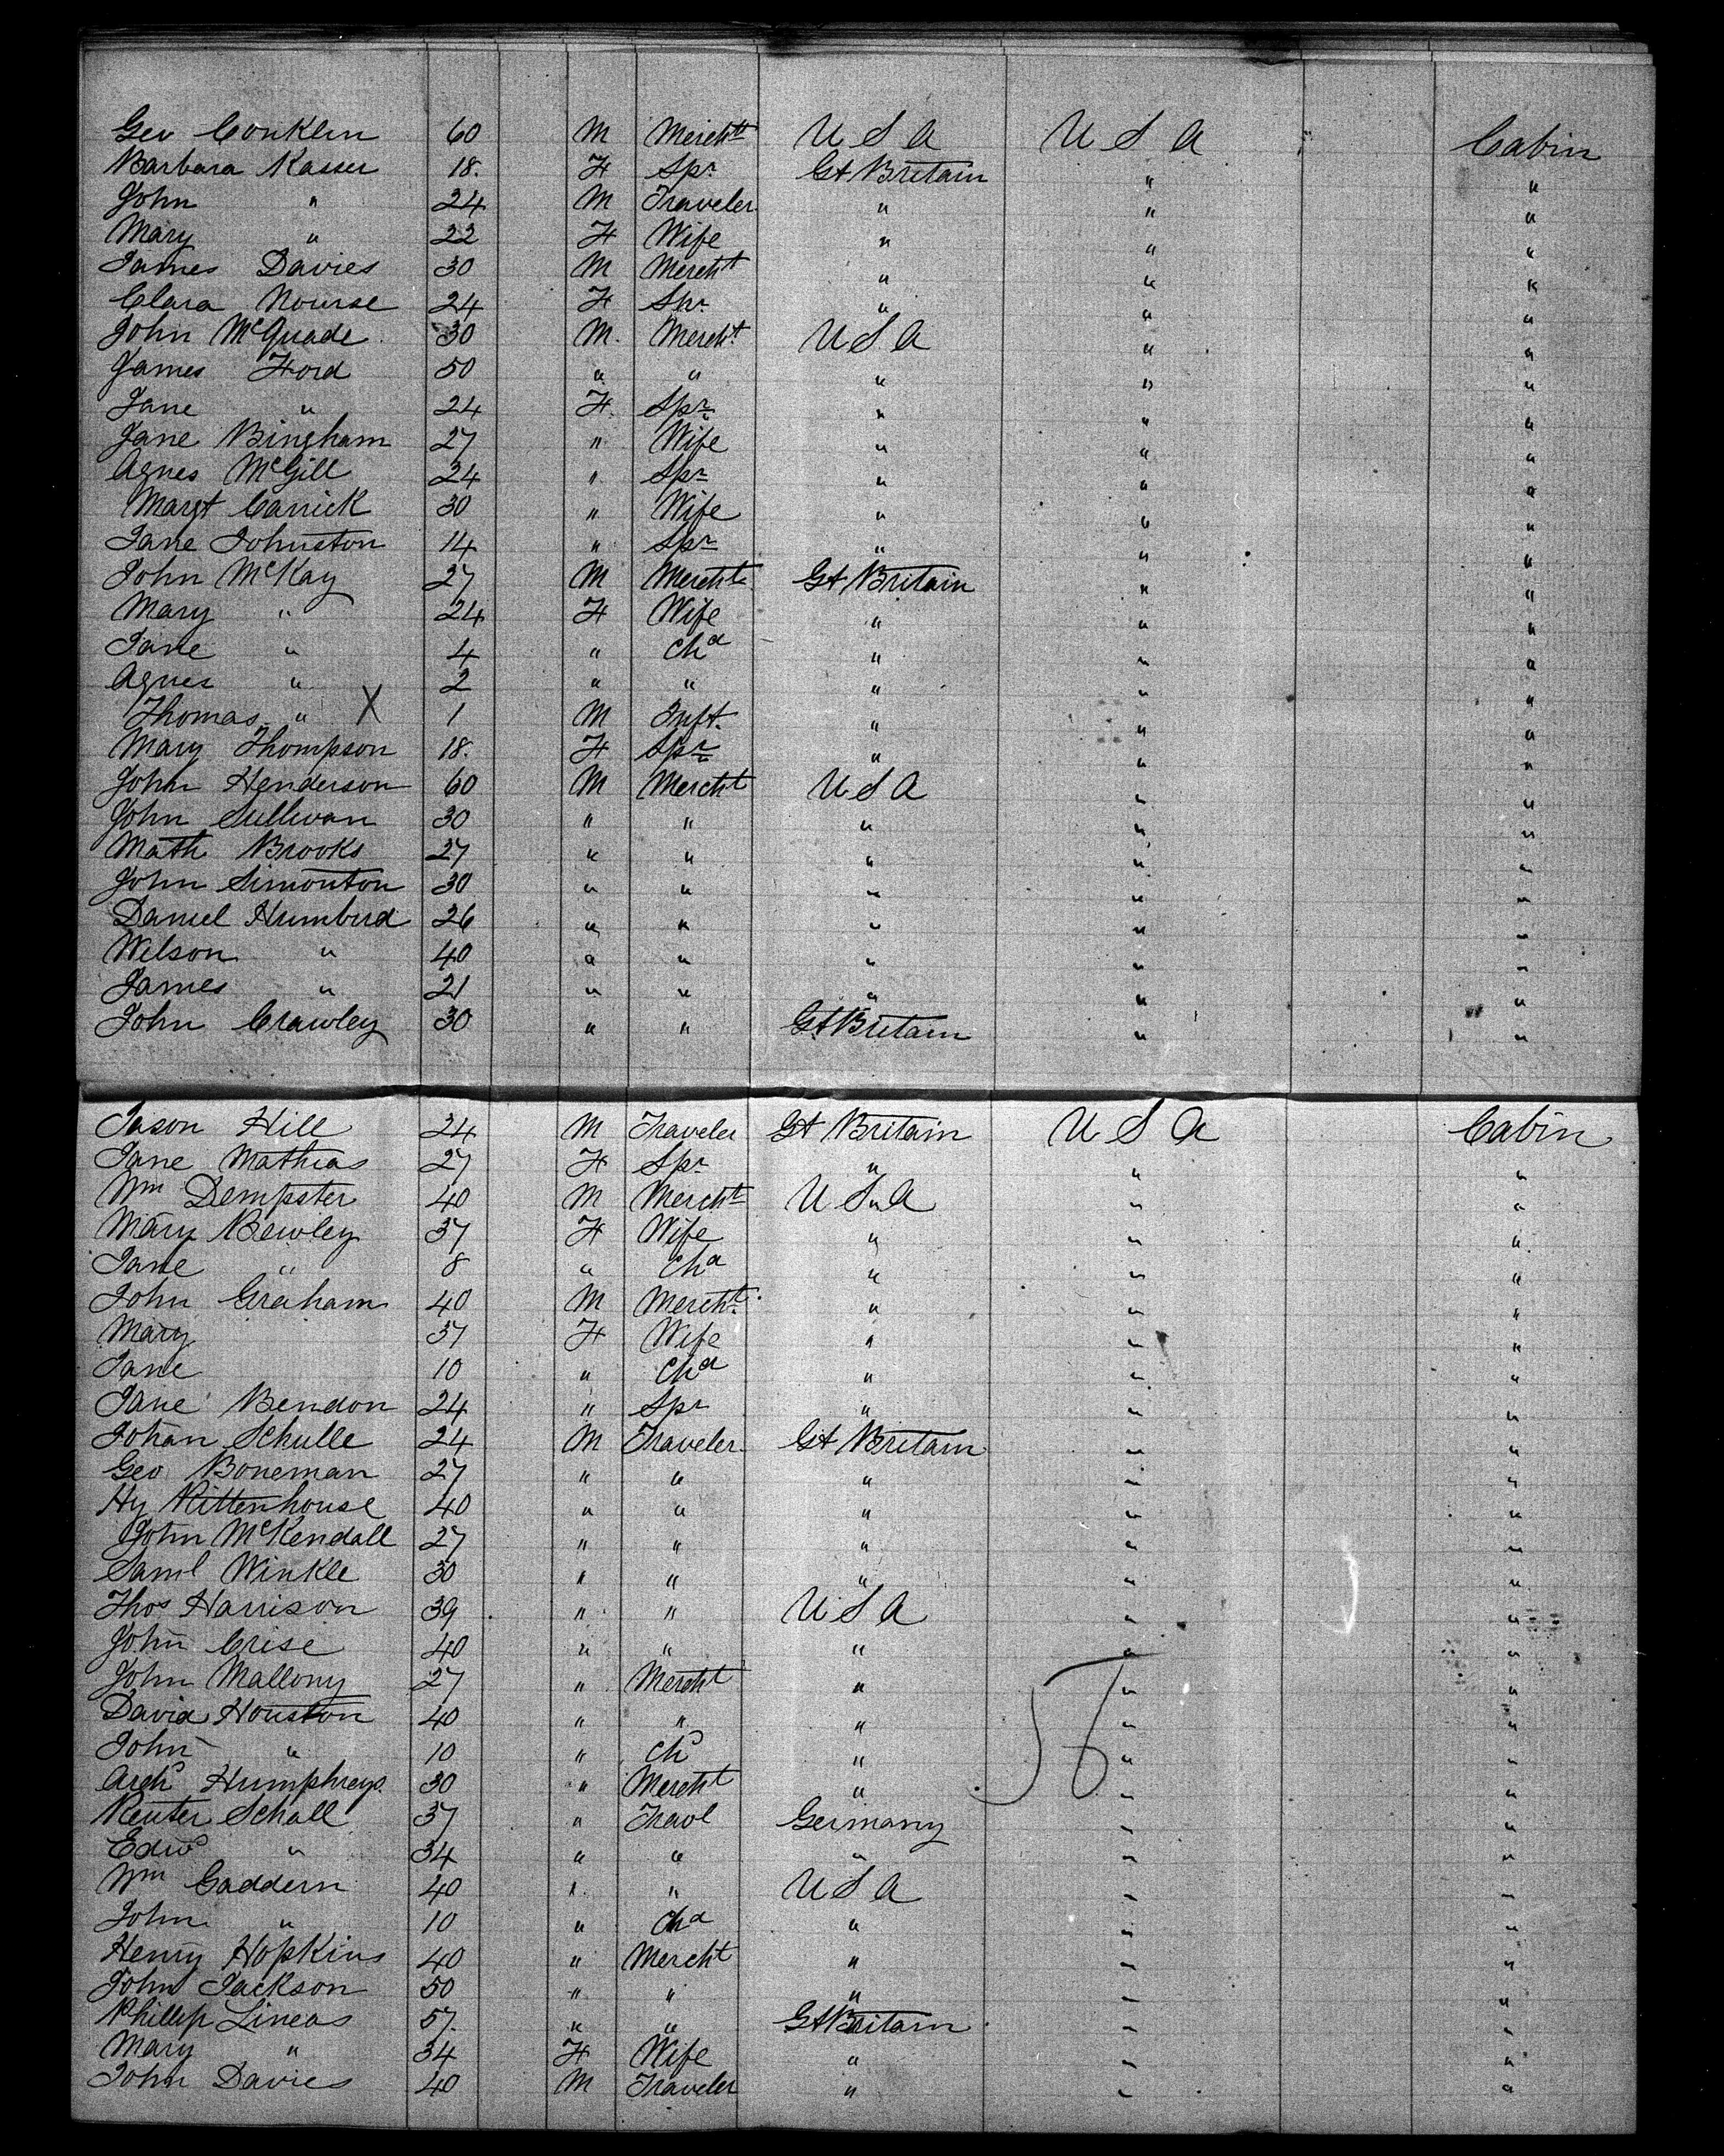 Geo Conklin 60 M Mercht U S A U S A " Cabin
Barbara Kasser 18. F Spr Gt Britain " "
John " 24 M Traveler " " "
Mary " 22 F Wife " " "
James Davies 30 M Mercht " " "
Clara Nourse 24 F Spr " " "
John McQuade 30 M. Mercht U S A " "
James Ford 50 " " " " "
Jane " 24 F. Spr " " "
Jane Bingham 27 " Wife " " "
Agnes McGill 24 " Spr " " "
Margt Carrick 30 " Wife " " "
Jane Johnston 14 " Spr " " "
John McKay 27 M Mercht Gt Britain " "
Mary " 24 F Wife " " "
Jane " 4 " Chd " " "
Agnes " 2 " " " " "
Thomas " X 1 M Inft. " " "
Mary Thompson 18. F Spr " " "
John Henderson 60 M Mercht U S A " "
John Sullivan 30 " " " " "
Math Brooks 27 " " " " "
John Simonton 30 " " " " "
Daniel Humbird 26 " " " " "
Welson " 40 " " " " "
James " 21 " " " " "
John Crawley 30 " " Gt Britain " "
Jason Hill 24 M Traveler Gt Britain U S A Cabin
Jane Mathias 27 F Spr " " "
Wm Dempster 40 M Mercht U S A " "
Mary Bewley 37 F Wife " " "
Jane " 8 " Chd " " "
John Graham 40 M Mercht " " "
Mary 37 F Wife " " "
Jane 10 " Chd " " "
Jane Bendon 24 " Spr " " "
Johan Schulle 24 M Traveler Gt Britain " "
Geo Boneman 27 " " " " "
Hy Rittenhouse 40 " " " " "
John McKendall 27 " " " " "
Saml Winkle 30 " " " " "
Thos Harrison 39 " " U S A " "
John Crise 40 " " " " "
John Mallony 27 " Mercht " " "
David Houston 40 " " " " "
John " 10 " Ch " " "
Archd Humphreys 30 " Mercht " " "
Reuter Schall 37 " Travl Germany " "
Edwd " 34 " " " " "
Wm Gaddern 40 " " U S A " "
John " 10 " Chd " " "
Henry Hopkins 40 " Mercht " " "
John Jackson 50 " " " " "
Phillip Lineas 57. " " Gt Britain " "
Mary " 34 F Wife " " "
John Davies 40 M Traveler " " "